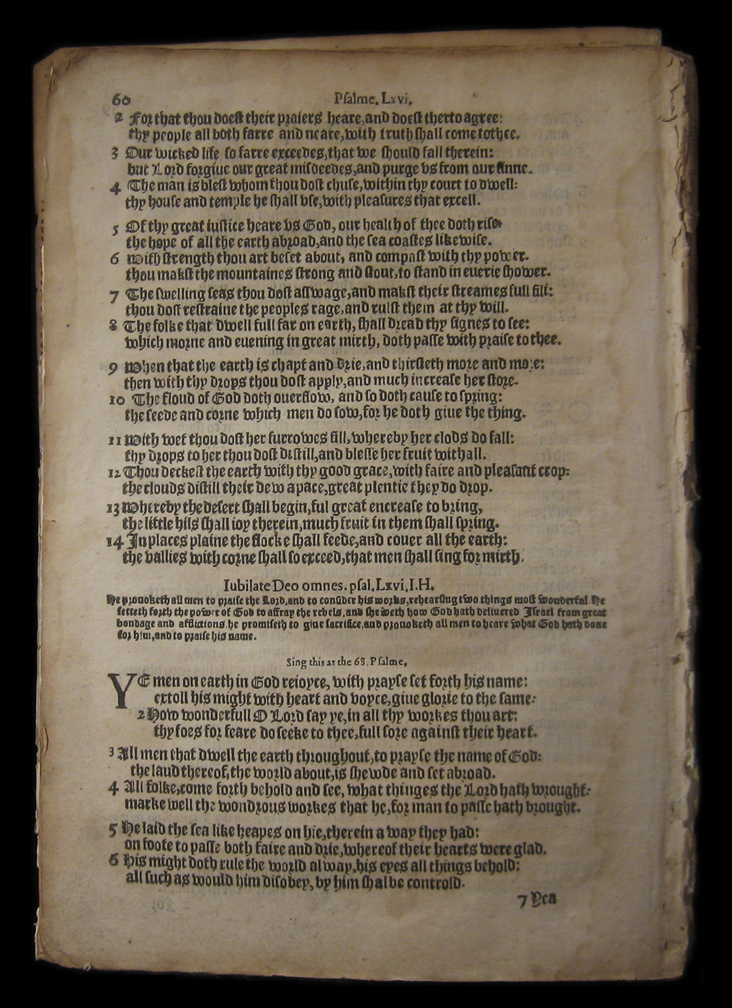 60 Psalme. Lxvi.
2 For that thou doest their praiers heare, and doest therto agree:
thy people all both farre and neare, with truth shall come to thee.
3 Our wicked life so farre exceedes, that we should fall therein:
but Lord forgiue our great misdeedes, and purge vs from our sinne.
4 The man is blest whom thou dost chuse, within thy court to dwell:
thy house and temple he shall vse, with pleasures that excell.
5 Of thy great iustice heare vs God, our health of thee doth rise:
the hope of all the earth abroad, and the sea coastes likewise.
6 With strength thou art beset about, and compast with thy power.
thou makst the mountaines strong and stout, to stand in euerie shower.
7 The swelling seas thou dost asswage, and makst their streames full still:
thou dost restraine the peoples rage, and rulst them at thy will.
8 The folke that dwell full far on earth, shall dread thy signes to see:
which morne and euening in great mirth, doth passe with praise to thee.
9 When that the earth is chapt and drie, and thirsteth more and more:
then with thy drops thou dost apply, and much increase her store.
10 The floud of God doth ouerflow, and so doth cause to spring:
the seede and corne which men do sow, for he doth giue the thing.
11 With wet thou dost her furrowes fill, whereby her clods do fall:
thy drops to her thou dost distill, and blesse her fruit withall.
12 Thou deckest the earth with thy good grace, with faire and pleasant crop:
the clouds distill their dew apace, great plentie they do drop.
13 Whereby the desert shall begin, ful great encrease to bring,
the little hils shall ioy therein, much fruit in them shall spring.
14 In places plaine the flocke shall feede, and couer all the earth:
the vallies with corne shall so exceed, that men shall sing for mirth.
Iubilate Deo omnes. psal. Lxvi. I. H.
He prouoketh all men to praise the Lord, and to consider his works, rehearsing two things most wonderful. He
setteth forth the power of God to affray the rebels, and sheweth how God hath deliuered Israel from great
bondage and afflictions. he promiseth to giue sacrifice, and prouoketh all men to heare what God hath done
for him, and to praise his name.
Sing this as the 68. Psalme.
YE men on earth in God reioyce, with prayse set forth his name:
extoll his might with heart and voyce, giue glorie to the same:
2 How wonderfull O Lord say ye, in all thy workes thou art:
thy foes for feare do seeke to thee, full sore against their heart.
3 All men that dwell the earth throughout, to prayse the name of God:
the laud thereof, the world about, is shewde and set abroad.
4 All folke, come forth behold and see, what thinges the Lord hath wrought:
marke well the wondrous workes that he, for man to passe hath brought.
5 He laid the sea like heapes on hie, therein a way they had:
on foote to passe both faire and drie, whereof their hearts were glad.
6 His might doth rule the world alway, his eyes all things behold:
all such as would him disobey, by him shal be controld.
7 Yea